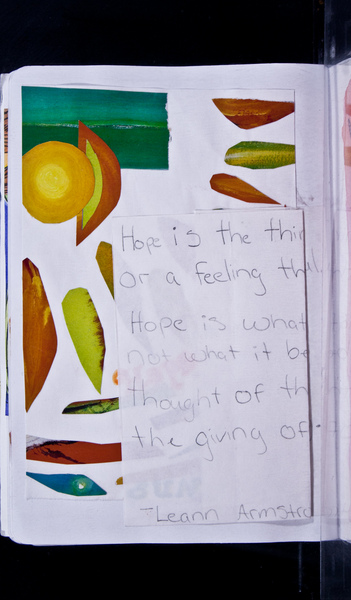 Hope is the thin
or a feeling tha
Hope is what
not what it be
thought of th
the giving of
-Leann Armstro